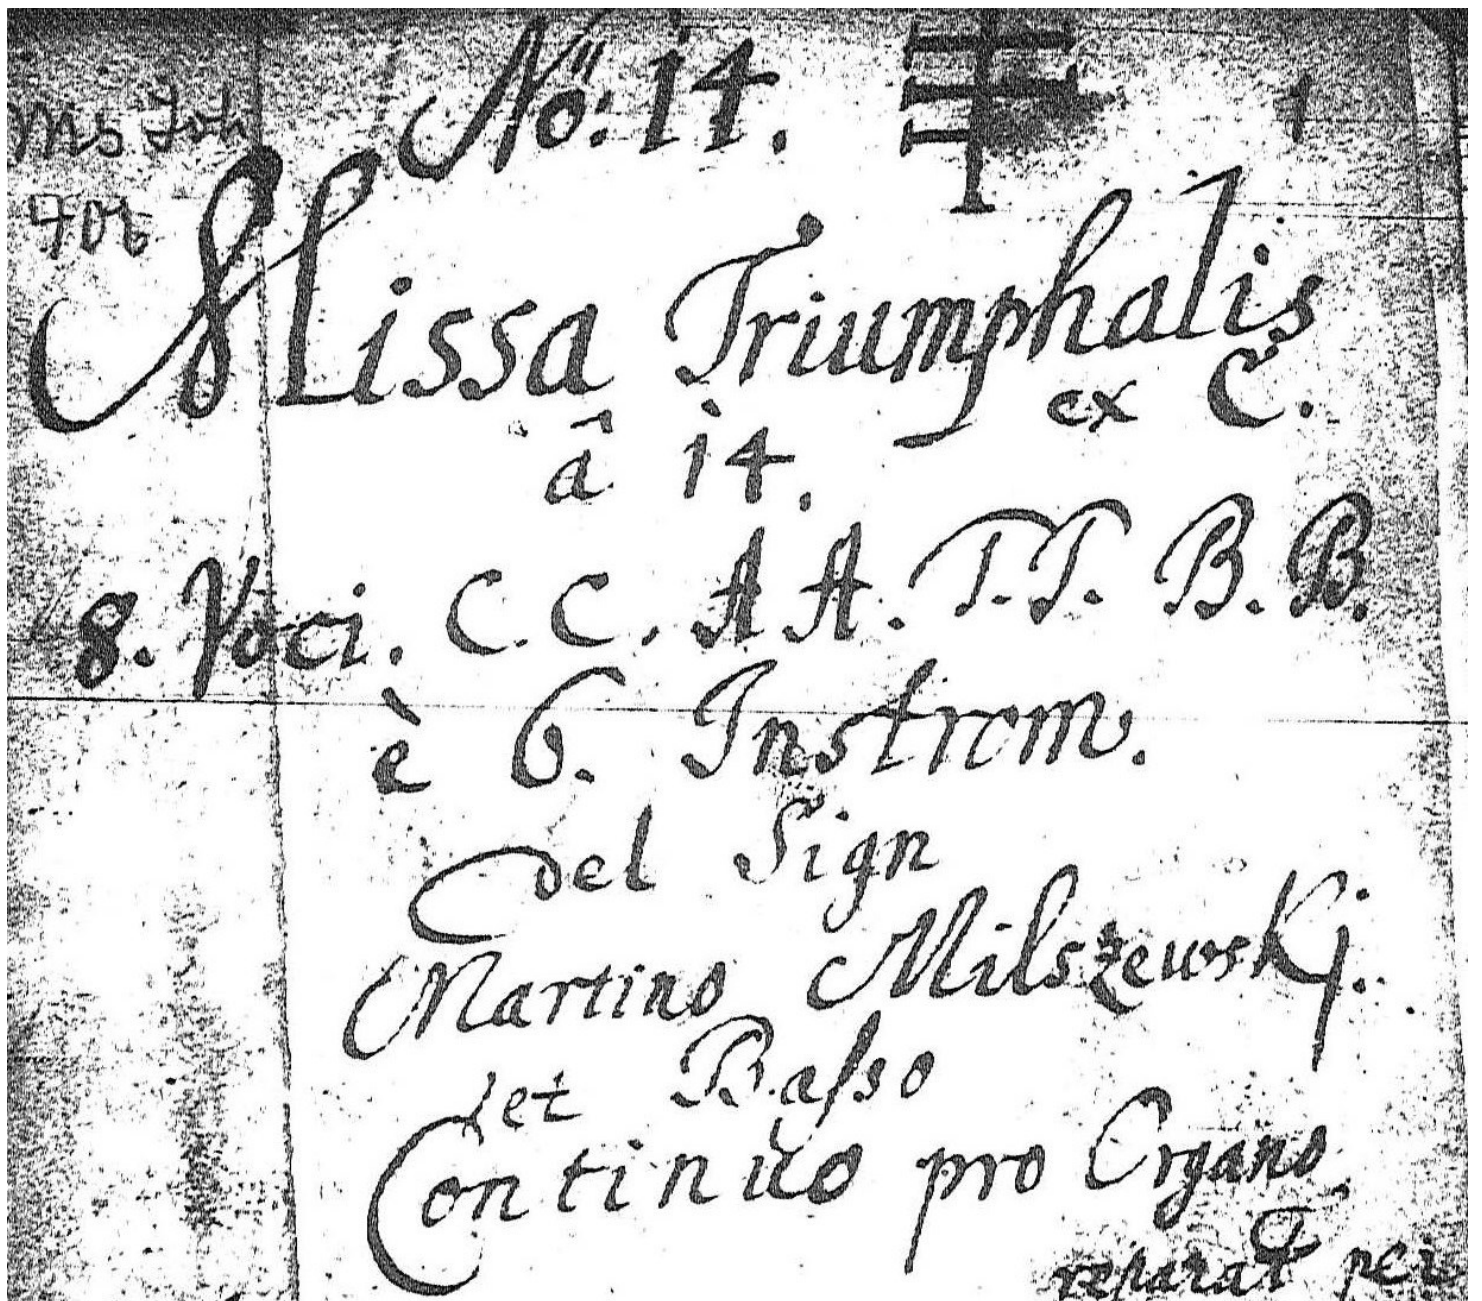 No: 14.
1
Ms Joh
406
Missa Triumphalis
ex C.
â 14.
8. Voci. C. C. A A. T. T. B. B.
è 6. Instrom.
del Sign
Martino Milszewskj.
et Basso
Continuo pro Organo
reparat per